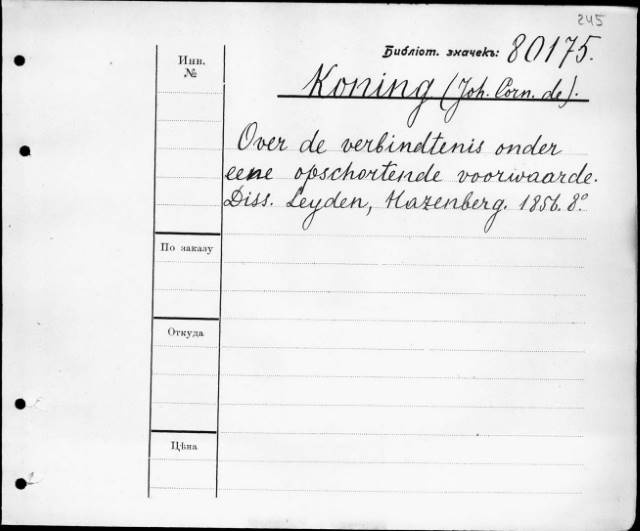 245
Библіот. значекъ: 80175.
Инв.
№
Koning (Joh. Corn. de).
Over de verbindtenis onder
eene opschortende voorwaarde.
Diss. Leyden, Hazenberg. 1856. 8º
По заказу
Откуда
Цѣна